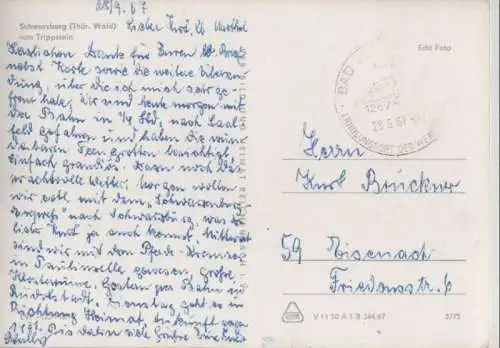 28/9.67
Schwarzburg (Thür. Wald)
vom Trippstein
Lieber Kurt, lb.
Herzlichen Dank für Euren lb. Brief
nebst Karte sowie die weitere Übersen-
dung, über die ich mich sehr ge-
freut habe. Wir sind heute morgen mit
der Bahn in nach Saal-
feld gefahren und haben die wun-
derbaren Feengrotten besichtigt
einfach grandios. Haben noch
prachtvolles Wetter. Morgen wollen
wir evtl. mit dem "Schwarzburg-
express" nach Schwarzburg, was Du
lieber Kurt ja auch kennst. Mittwoch
sind wir mit dem Pferde-Kremser
in Paulinzella gewesen, Große
Klosterruine. Gestern per Bahn in
Rudolstadt. Dienstag geht es in
Richtung Heimat,
Bis dahin viele Grüße
Echt Foto
BAD
28.9.67
Herrn
Kurt Brückner
59 Eisenach
Friedensstr. 6
V 11 50 A 1 B 344/67
5775